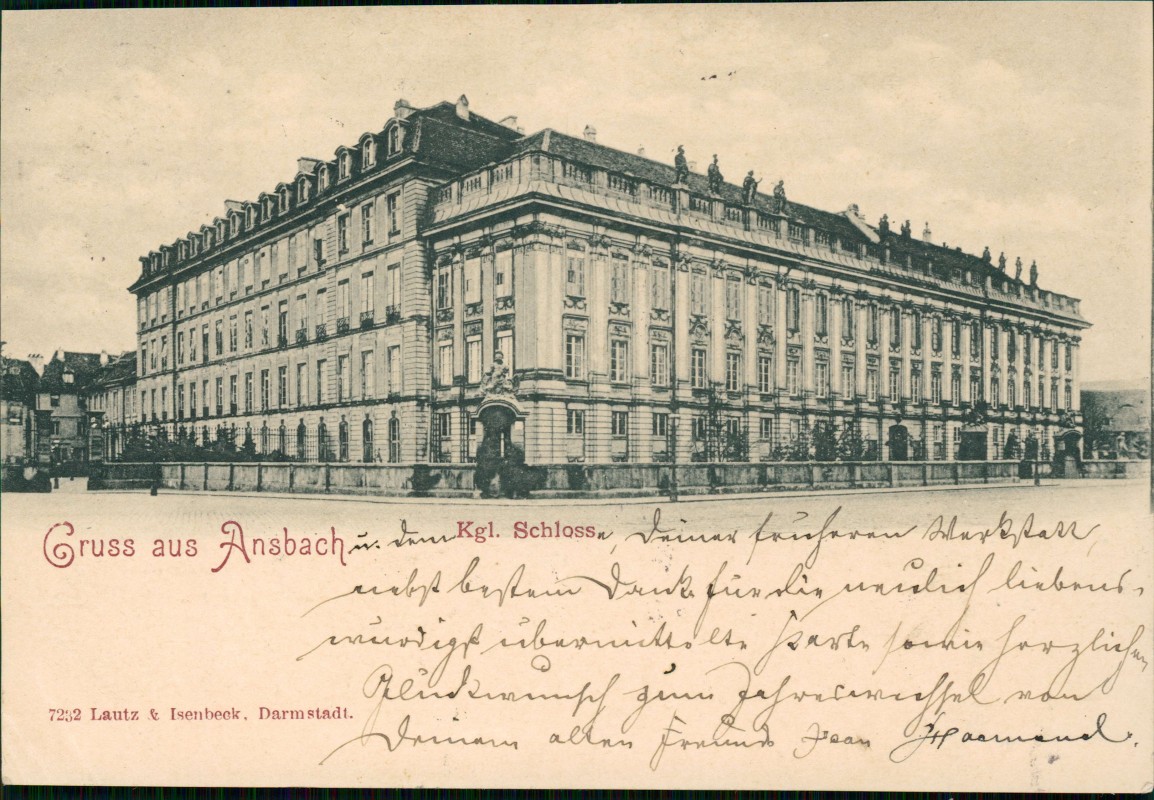 Gruss aus Ansbach u. dem Kgl. Schlosse, Deiner früheren Werkstatt,
nebst bestem Dank für die neulich liebens-
würdigst übermittelte Karte sowie herzlichen
Glückwunsch zum Jahreswechsel von
Deinem alten Freund Jean
7232 Lautz & Isenbeck, Darmstadt.